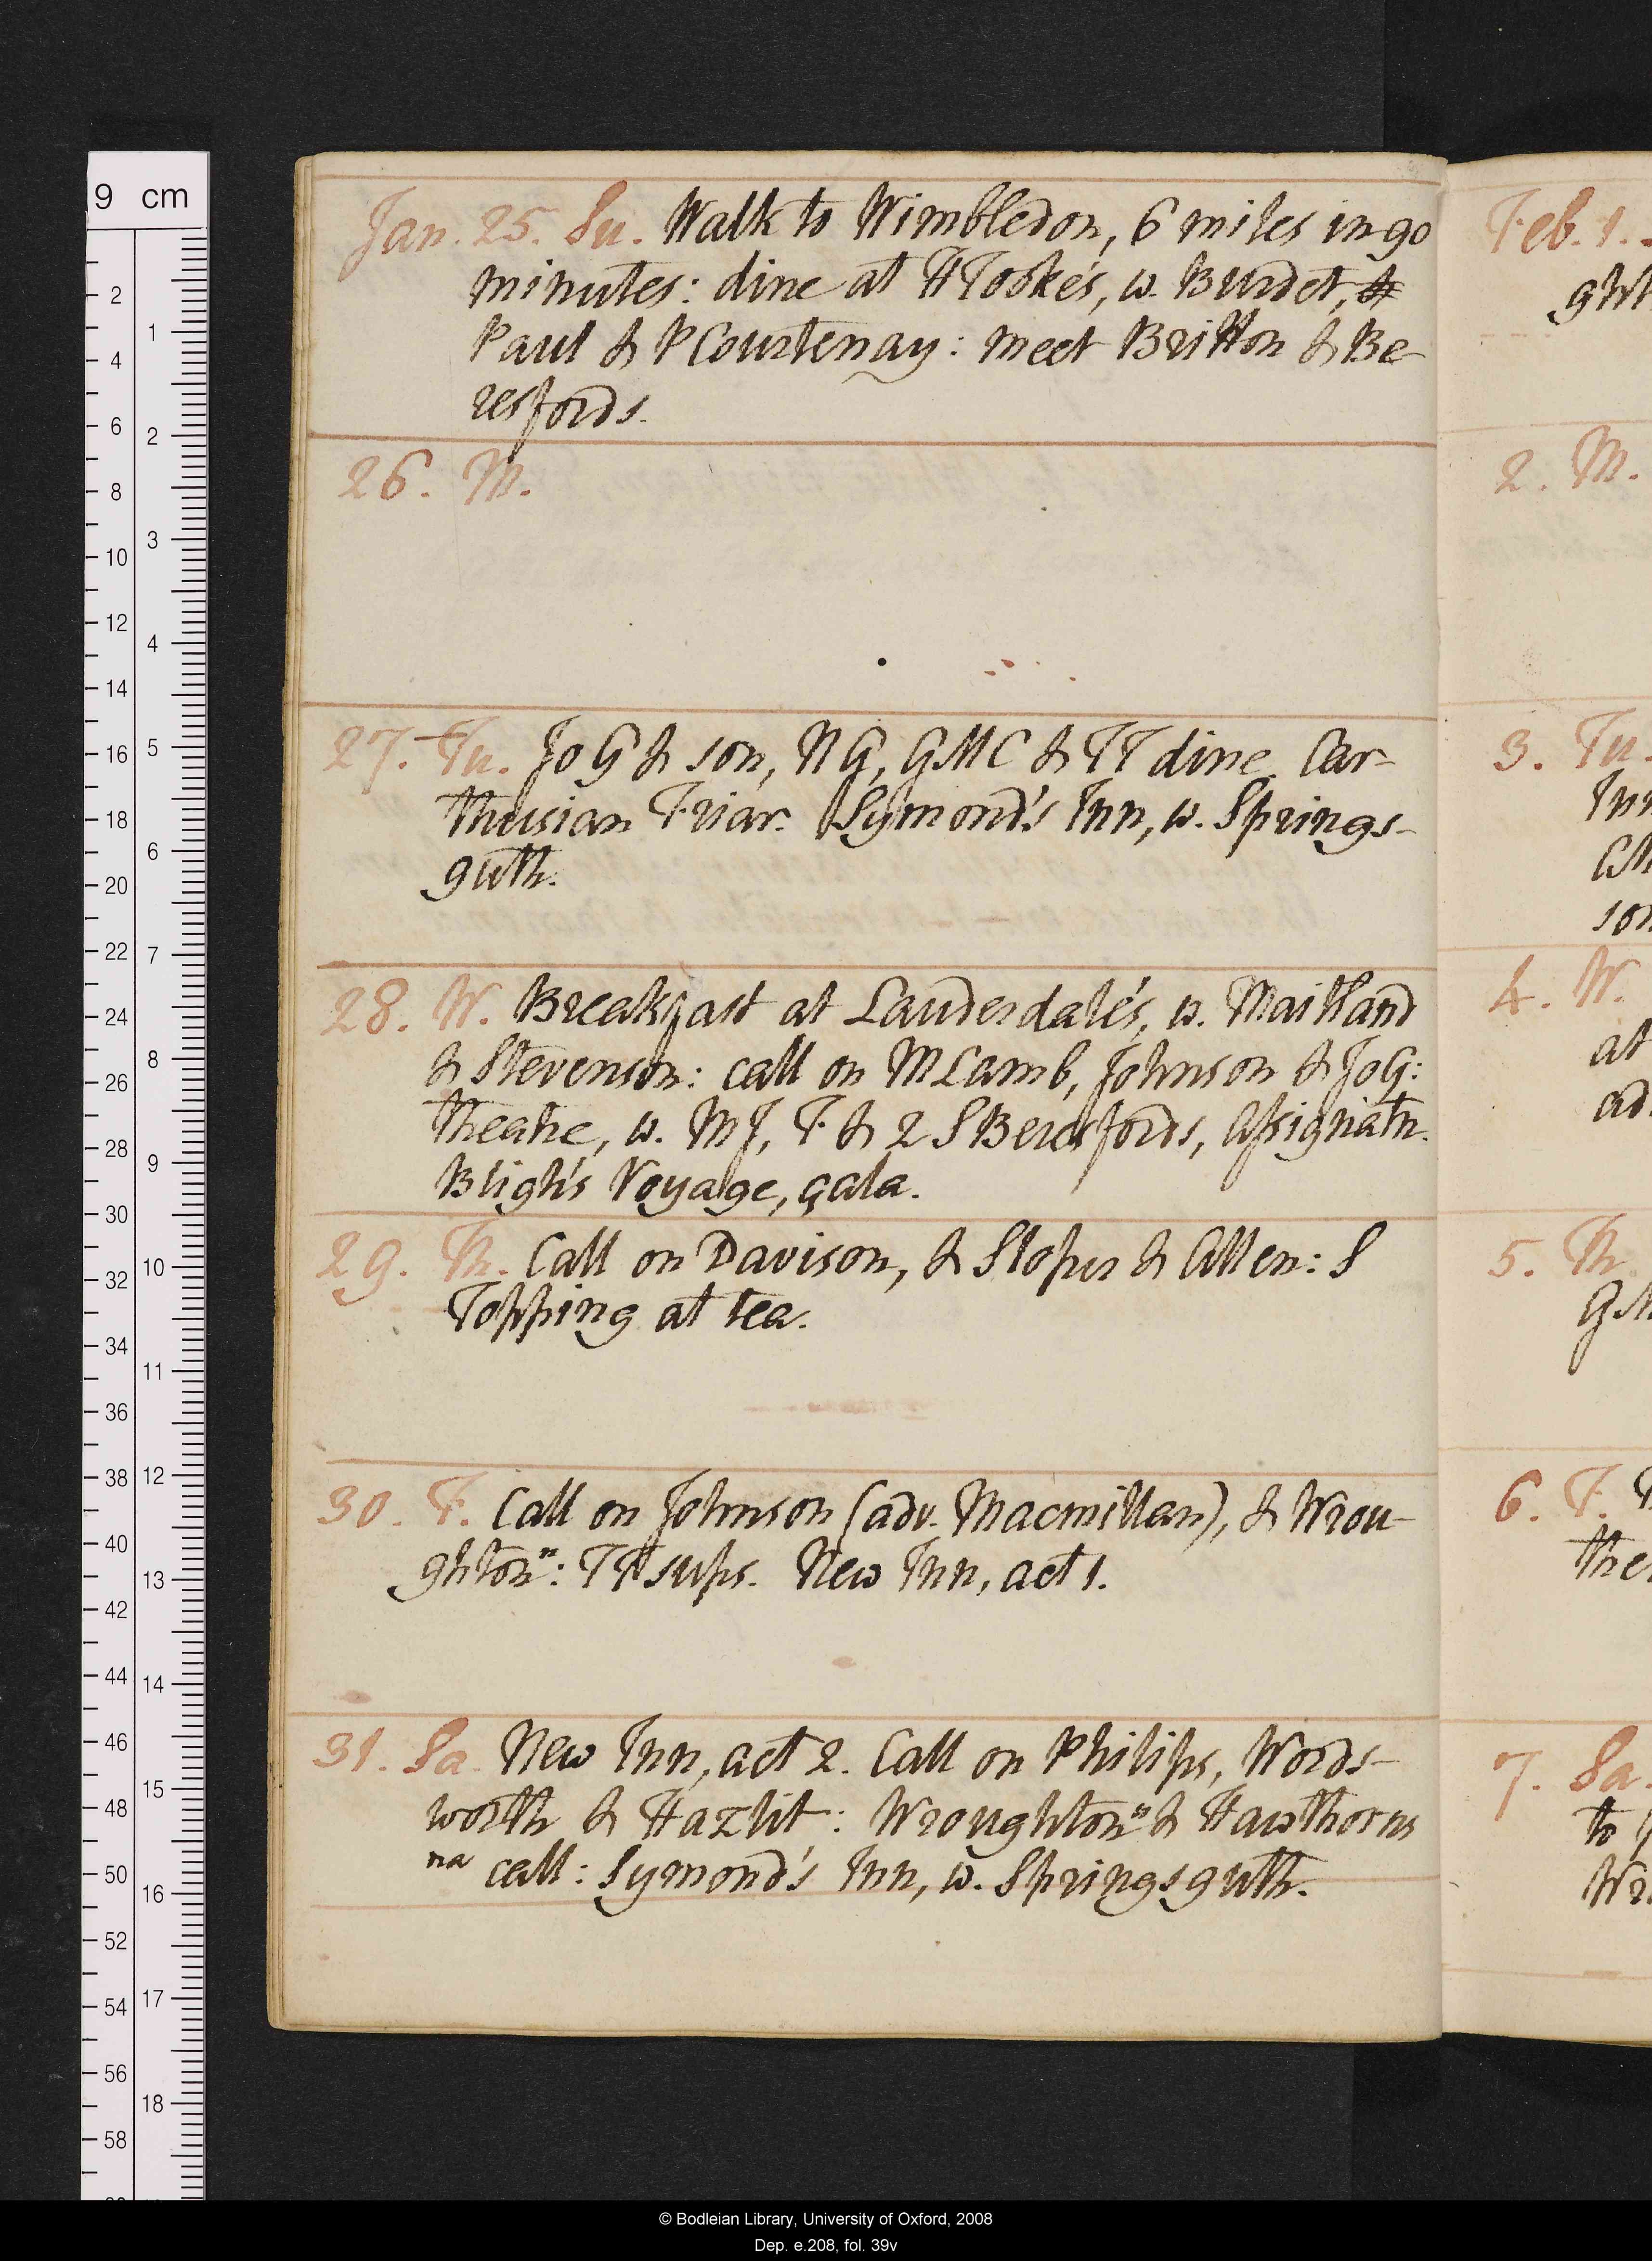 9 cm
2
4
6
8
10
12
14
16
18
20
22
24
26
28
30
32
34
36
38
40
42
44
46
48
50
52
54
56
58
1
2
3
4
5
6
7
8
9
10
11
12
13
14
15
16
17
18
Jan. 25. Su. Walk to Wimbledon, 6 miles in 90
minutes: dine at HTooke's, w. Burdet, &
Paul & PCourtenay: meet Britton & Be-
resfords.
26. M.
27. Tu. JoG & son, NG, GMC & TT dine. Car-
thusian Friar. Symond's Inn, w. Springs-
guth.
28. W. Breakfast at Lauderdale's, w. Maitland
& Stevenson: call on MLamb, Johnson & JoG:
theatre, w. MJ, F. & 2 SBeresfords, Assignatn.
Bligh's Voyage, çala.
29. Th. Call on Davison, & Sloper & Allen: S
Topping at tea.
30. F. Call on Johnson (adv. Macmillan), & Wrou-
ghtonⁿ: TT sups. New Inn, act 1.
31. Sa. New Inn, act 2. Call on Philips, Words-
worth & Hazlit: Wroughtonⁿ & Hawthorns
na call: Symond's Inn, w. Springsguth.
Feb. 1.
ght
2. M.
3. Tu.
Inn
CM
son
4. W.
at
ad
5. Th
GM
6. F.
the
7. Sa.
to
Wr
© Bodleian Library, University of Oxford, 2008
Dep. e.208, fol. 39v